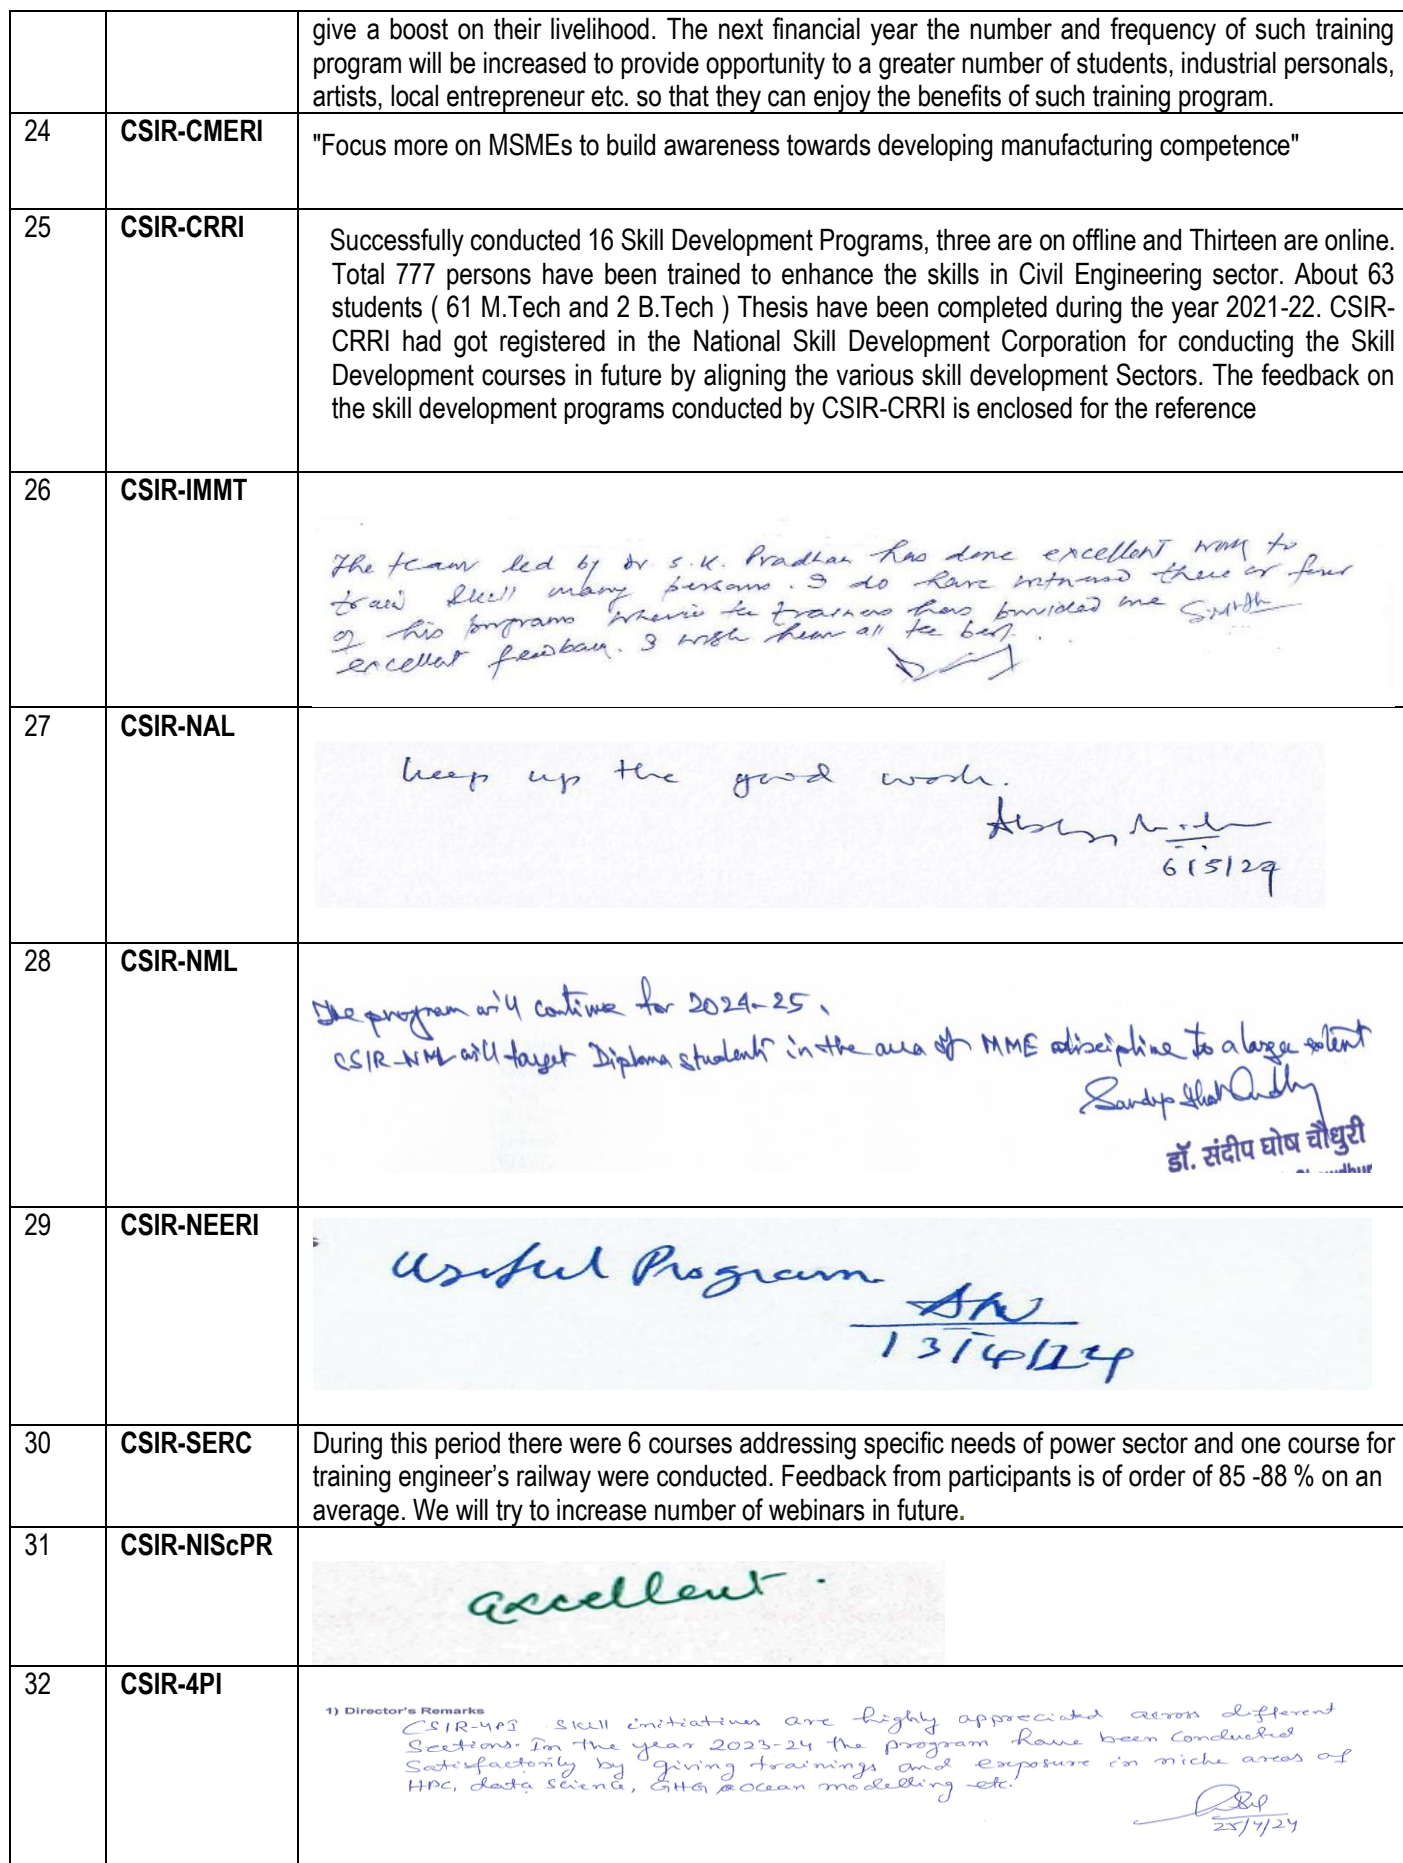 give a boost on their livelihood. The next financial year the number and frequency of such training
program will be increased to provide opportunity to a greater number of students, industrial personals,
artists, local entrepreneur etc. so that they can enjoy the benefits of such training program.
24 CSIR-CMERI "Focus more on MSMEs to build awareness towards developing manufacturing competence"
25 CSIR-CRRI
Successfully conducted 16 Skill Development Programs, three are on offline and Thirteen are online.
Total 777 persons have been trained to enhance the skills in Civil Engineering sector. About 63
students ( 61 M.Tech and 2 B.Tech ) Thesis have been completed during the year 2021-22. CSIR-
CRRI had got registered in the National Skill Development Corporation for conducting the Skill
Development courses in future by aligning the various skill development Sectors. The feedback on
the skill development programs conducted by CSIR-CRRI is enclosed for the reference
26 CSIR-IMMT
The team led by Dr S.K. Pradhan has done excellent work to
train skill many persons. I do have witnessed three or four
of his programs wherein the trainees has provided me
excellent feedback. I wish him all the best.
27 CSIR-NAL
keep up the good work.
6/5/24
28 CSIR-NML
The program will continue for 2024-25.
CSIR-NML will target Diploma students in the area of MME discipline to a large extent
डॉ. संदीप घोष चौधुरी
29 CSIR-NEERI
Useful Program
13/4/24
30 CSIR-SERC During this period there were 6 courses addressing specific needs of power sector and one course for
training engineer’s railway were conducted. Feedback from participants is of order of 85 -88 % on an
average. We will try to increase number of webinars in future.
31 CSIR-NIScPR
Excellent.
32 CSIR-4PI
1) Director's Remarks
CSIR-4PI skill initiatives are highly appreciated across different
Sections. In the year 2023-24 the program have been conducted
Satisfactorily by giving trainings and exposure in niche areas of
HPC, data science, GHG ocean modelling etc.
25/4/24